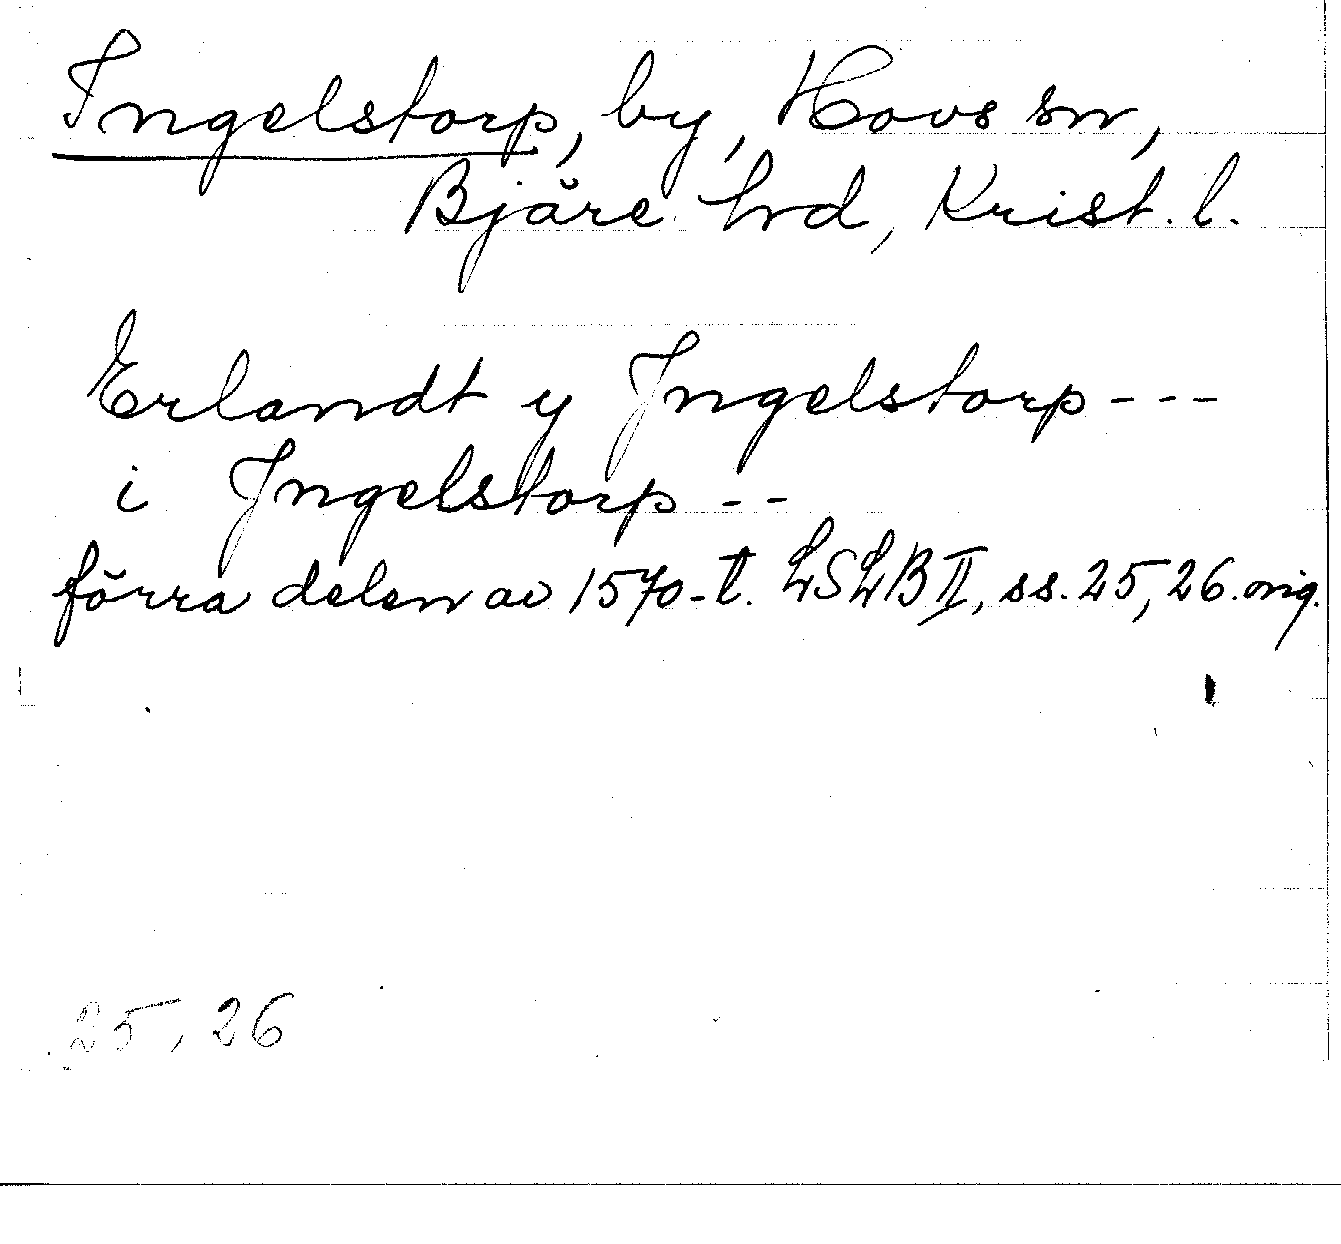 Ingelstorp, by, Hovs sn,
Bjäre hrd, Krist. l.
Erlandt y Jngelstorp ---
i Jngelstorp --
förra delen av 1570-t. LSLB II, ss. 25, 26. orig.
25, 26